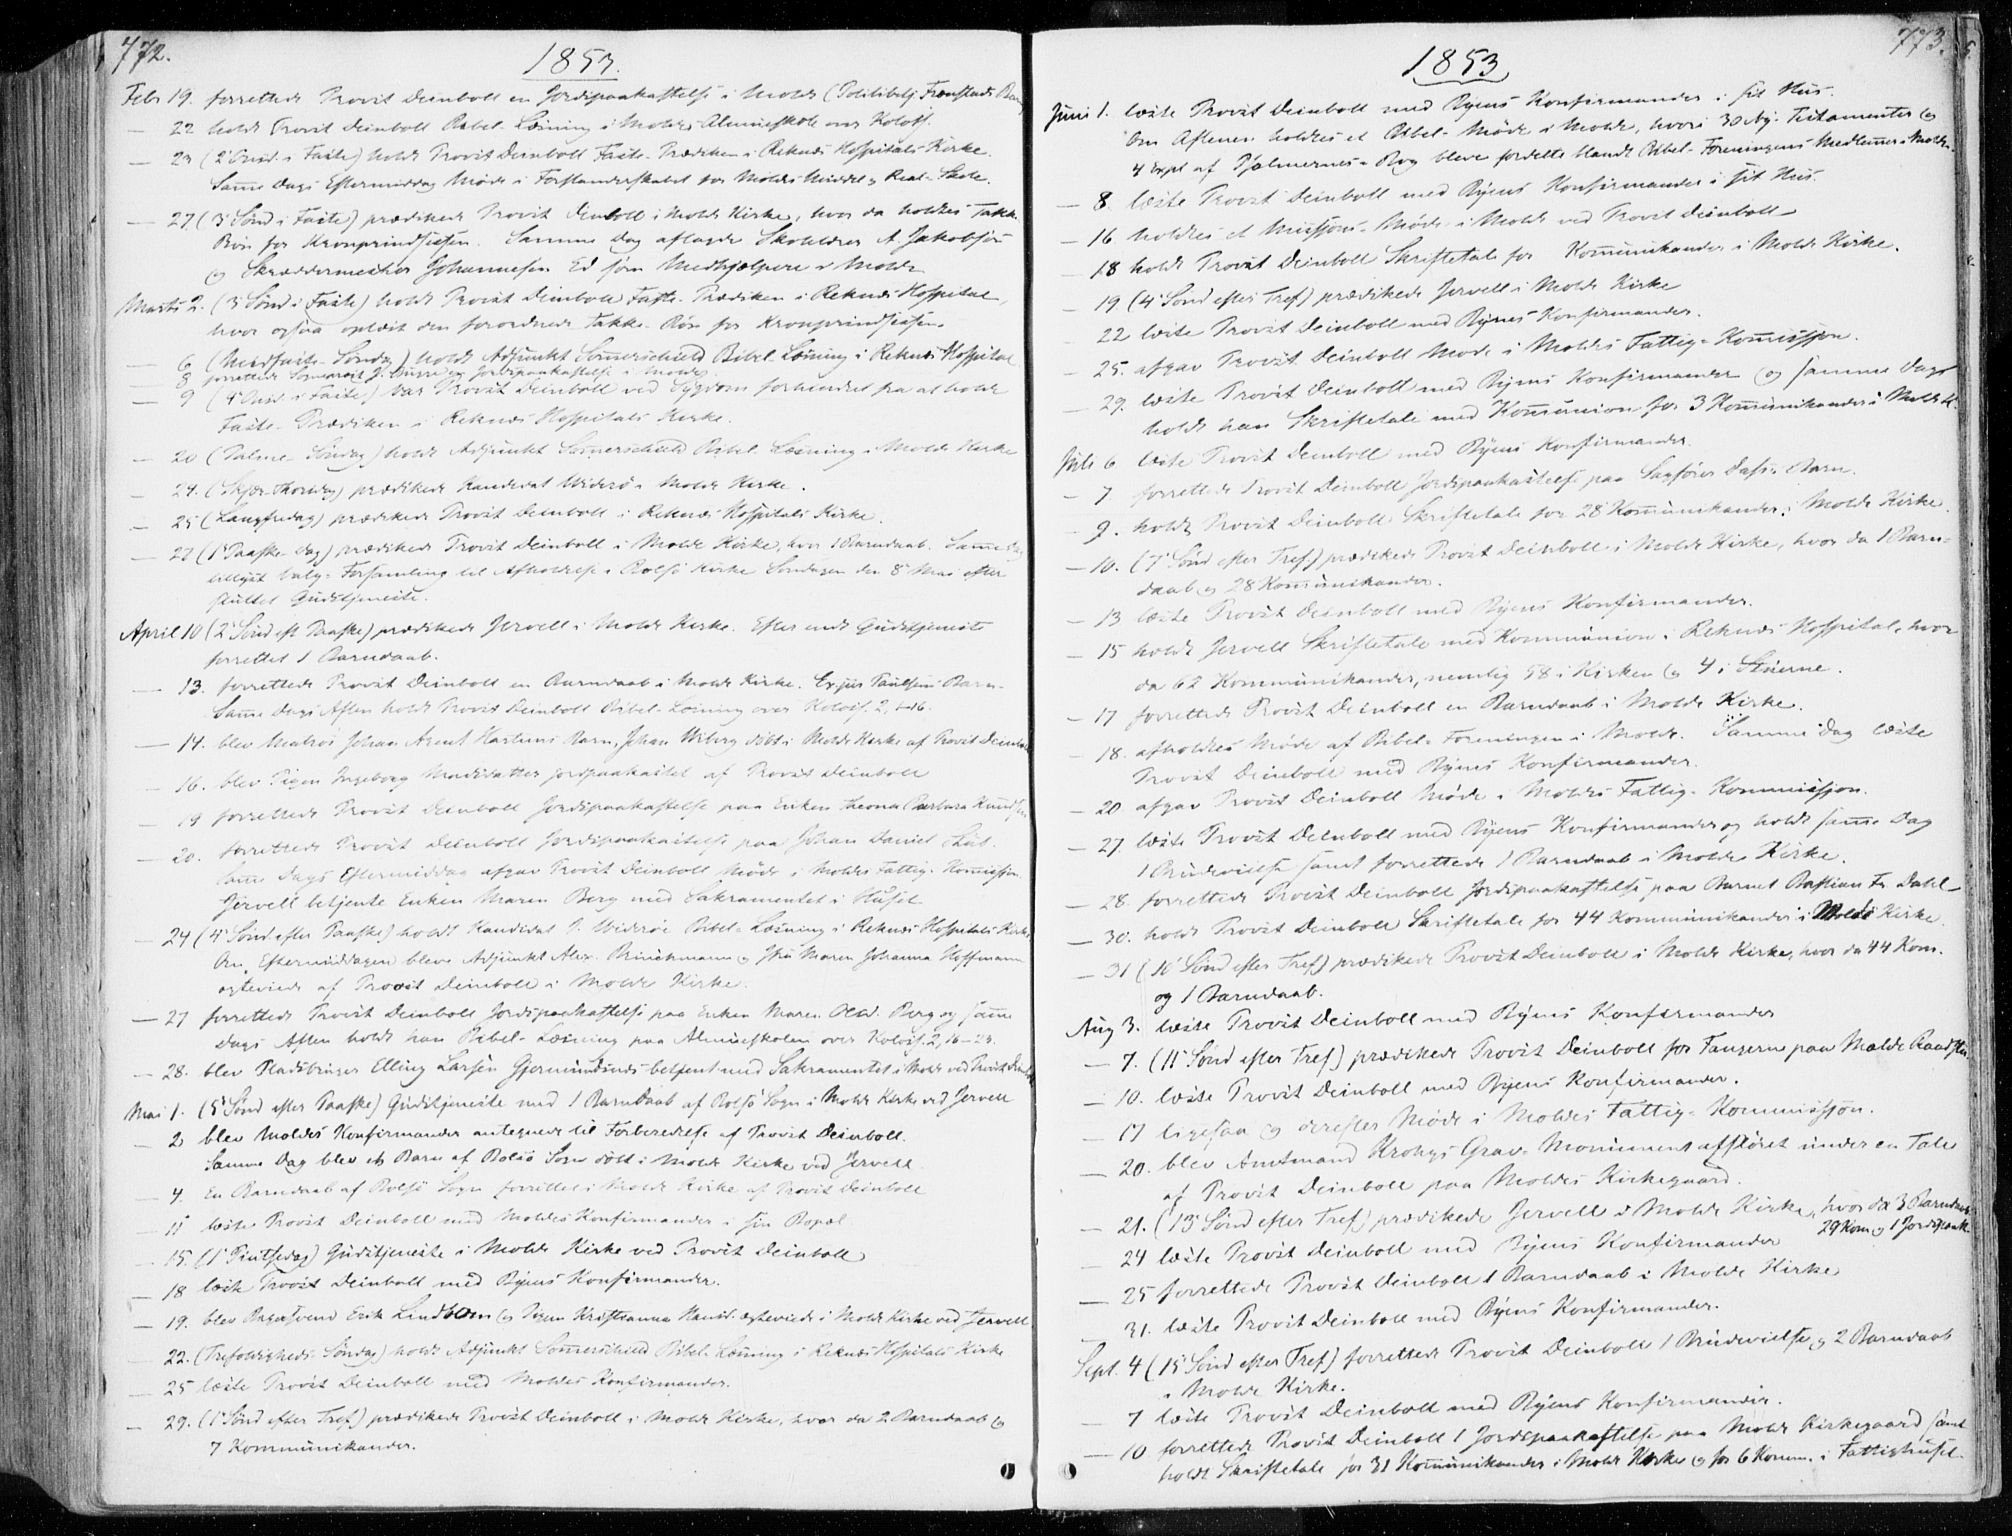 772.
1853.
Febr 19. forrettede Provst Deinboll en Jordspaakastelse i Molde (Politibetj. Fronstads Barn)
— 22 holdt Provst Deinboll Bibel-Læsning i Moldes Almueskole over Koloss.
— 23 (2 Onsd. i Faste) holdt Provst Deinboll Faste-Prædiken i Reknæs Hospitals Kirke.
Samme Dags Eftermiddag Møde i Forstanderskabet for Moldes Middel- og Real-Skole.
— 27 (3 Sønd i Faste) prædikede Provst Deinboll i Molde Kirke, hvor da holdtes Takke-
Bøn for Kronprindsessen. Samme Dag aflagde Skolelærer A. Jakobsen
og Skræddermester Johannesen Ed som Medhjælpere i Molde
Marts 2. (3 Onsd i Faste) holdt Provst Deinboll Faste-Prædiken i Reknæs Hospital,
hvor ogsaa oplæst den forordnede Takke-Bøn for Kronprindsessen.
— 6 (Midfaste-Søndag) holdt Adjunkt Sommerschield Bibel-Læsning i Reknæs Hospital
— 8 forrettede Jordspaakastelse i Molde
— 9 (4 Onsd. i Faste) var Provst Deinboll ved Sygdom forhindret fra at holde
Faste-Prædiken i Reknæs Hospitals Kirke.
— 20 (Palme-Søndag) holdt Adjunkt Sommerschield Bibel-Læsning i Molde Kirke
— 24. (Skjær-Thorsdag) prædikede Kandidat Widerøe i Molde Kirke.
— 25 (Langfredag) prædikede Provst Deinboll i Reknæs Hospitals Kirke.
— 27 (1 Paaske-dag) prædikede Provst Deinboll i Molde Kirke, hvor 1 Barndaab. Samme Dag
tillyst Valg-Forsamling til Afholdelse i Bolsø Kirke Søndagen den 8 Mai efter
sluttet Gudstjeneste.
April 10 (2 Sønd eft Paaske) prædikede Jervell i Molde Kirke. Efter endt Gudstjeneste
forrettet 1 Barndaab.
— 13. forrettede Provst Deinboll en Barndaab i Molde Kirke. Paulsens Barn.
Samme Dags Aften holdt Provst Deinboll Bibel-Læsning over Koloss. 2, 16.
— 14. blev Matros Johan Arent Hartuns Barn, Johan Wiberg døbt i Molde Kirke af Provst Deinboll
— 16. blev Pigen Ingeborg Madsdatter jordpaakastet af Provst Deinboll
— 19 forrettede Provst Deinboll Jordspaakastelse paa Enken Theona Barbara Knudsen
— 20. forrettede Provst Deinboll Jordspaakastelse paa Johan Daniel
samme Dags Eftermiddag afgav Provst Deinboll Møde i Moldes Fattig-Kommission.
Jervell betjente Enken Maren Berg med Sakramentet i Huset
— 24 (4 Sønd efter Paaske) holdt Kandidat Widerøe Bibel-Læsning i Reknæs Hospitals Kirke
Om Eftermiddagen bleve Adjunkt Alex. Brinchmann og Jfr. Maren Johanna Hoffmann
ægteviede af Provst Deinboll i Molde Kirke.
— 27 forrettede Provst Deinboll Jordspaakastelse paa Enken Maren Olsd. Berg og samme
Dags Aften holdt han Bibel-Læsning paa Almueskolen over Koloss. 2, 16-23.
— 28. blev Pladsbruger Elling Larsen Gjermundsnes betjent med Sakramentet i Molde ved Provst Deinboll
Mai 1. (5 Sønd efter Paaske) Gudstjeneste med 1 Barndaab af Bolsø Sogn i Molde Kirke ved Jervell
— 2 blev Moldes Konfirmander antegnede til Forberedelse af Provst Deinboll.
Samme Dag blev et Barn af Bolsø Sogn døbt i Molde Kirke ved Jervell.
— 4. En Barndaab af Bolsø Sogn forrettet i Molde Kirke af Provst Deinboll
— 11 læste Provst Deinboll med Moldes Konfirmander i sin Bopæl
— 15. (1 Pintsedag) Gudstjeneste i Molde Kirke ved Provst Deinboll
— 18 læste Provst Deinboll med Byens Konfirmander.
— 19. blev Bagersvend Erik Lindblom og Pigen Kristianna Hansd. ægteviede i Molde Kirke ved Jervell
— 22. (Trefoldigheds-Søndag) holdt Adjunkt Sommerschield Bibel-Læsning i Reknæs Hospitals Kirke
— 25 læste Provst Deinboll med Moldes Konfirmander.
— 29. (1 Sønd efter Tref.) prædikede Provst Deinboll i Molde Kirke, hvor da 2 Barndaab og
7 Kommunikander.
773.
1853
Juni 1. læste Provst Deinboll med Byens Konfirmander i sit Hus.
Om Aftenen holdtes et Bibel-Møde i Molde, hvori 30 Ny-Testamenter og
4 Expl af Psalmernes-Bog bleve fordelte blandt Bibel-Foreningens Medlemmer i Molde.
— 8 læste Provst Deinboll med Byens Konfirmander i sit Hus.
— 16 holdtes et Missions-Møde i Molde ved Provst Deinboll
— 18 holdt Provst Deinboll Skriftetale for Kommunikander i Molde Kirke.
— 19 (4 Sønd efter Tref) prædikede Jervell i Molde Kirke
— 22 læste Provst Deinboll med Byens Konfirmander.
— 25. afgav Provst Deinboll Møde i Moldes Fattig-Kommission.
— 29. læste Provst Deinboll med Byens Konfirmander og samme Dag
holdt han Skriftetale med Kommunion for 3 Kommunikander i Molde K.
Juli 6 læste Provst Deinboll med Byens Konfirmander.
— 7. forrettede Provst Deinboll Jordspaakastelse paa Sagfører Barn.
— 9. holdt Provst Deinboll Skriftetale for 28 Kommunikander i Molde Kirke.
— 10. (7 Sønd efter Tref) prædikede Provst Deinboll i Molde Kirke, hvor da 1 Barn-
daab og 28 Kommunikander.
— 13 læste Provst Deinboll med Byens Konfirmander.
— 15 holdt Jervell Skriftetale med Kommunion i Reknæs Hospital, hvor
da 62 Kommunikander, nemlig 58 i Kirken og 4 i Stuerne.
— 17 forrettede Provst Deinboll en Barndaab i Molde Kirke.
— 18. afholdtes Møde af Bibel-Foreningen i Molde. Samme Dag læste
Provst Deinboll med Byens Konfirmander.
— 20 afgav Provst Deinboll Møde i Moldes Fattig-Kommission.
— 27. læste Provst Deinboll med Byens Konfirmander og holdt samme Dag
1 Brudevielse samt forrettede 1 Barndaab i Molde Kirke.
— 28. forrettede Provst Deinboll Jordspaakastelse paa Barnet Bastian Fr. Dahl
— 30. holdt Provst Deinboll Skriftetale for 44 Kommunikander i Molde Kirke.
— 31 (10 Sønd efter Tref) prædikede Provst Deinboll i Molde Kirke, hvor da 44 Kom.
og 1 Barndaab.
Aug 3. læste Provst Deinboll med Byens Konfirmander
— 7. (11 Sønd efter Tref) prædikede Provst Deinboll for Fangerne paa Molde Raadstue
— 10. læste Provst Deinboll med Byens Konfirmander.
— 17 ligesaa og derefter Møde i Moldes Fattig-Kommission.
— 20. blev Amtmand Krohgs Grav-Monument afsløret under en Tale
af Provst Deinboll paa Moldes Kirkegaard.
— 21. (13 Sønd efter Tref) prædikede Jervell i Molde Kirke, hvor da 3 Barndaab
29 Kom. og 1 Jordspaak.
— 24 læste Provst Deinboll med Byens Konfirmander
— 25 forrettede Provst Deinboll 1 Barndaab i Molde Kirke
— 31. læste Provst Deinboll med Byens Konfirmander.
Sept. 4 (15 Sønd efter Tref) forrettede Provst Deinboll 1 Brudevielse og 2 Barndaab
i Molde Kirke.
— 7 læste Provst Deinboll med Byens Konfirmander.
— 10 forrettede Provst Deinboll 1 Jordspaakastelse paa Molde Kirkegaard samt
holdt Skriftetale for 31 Kommunikander i Molde Kirke og for 6 Komm. i Fattighuset.